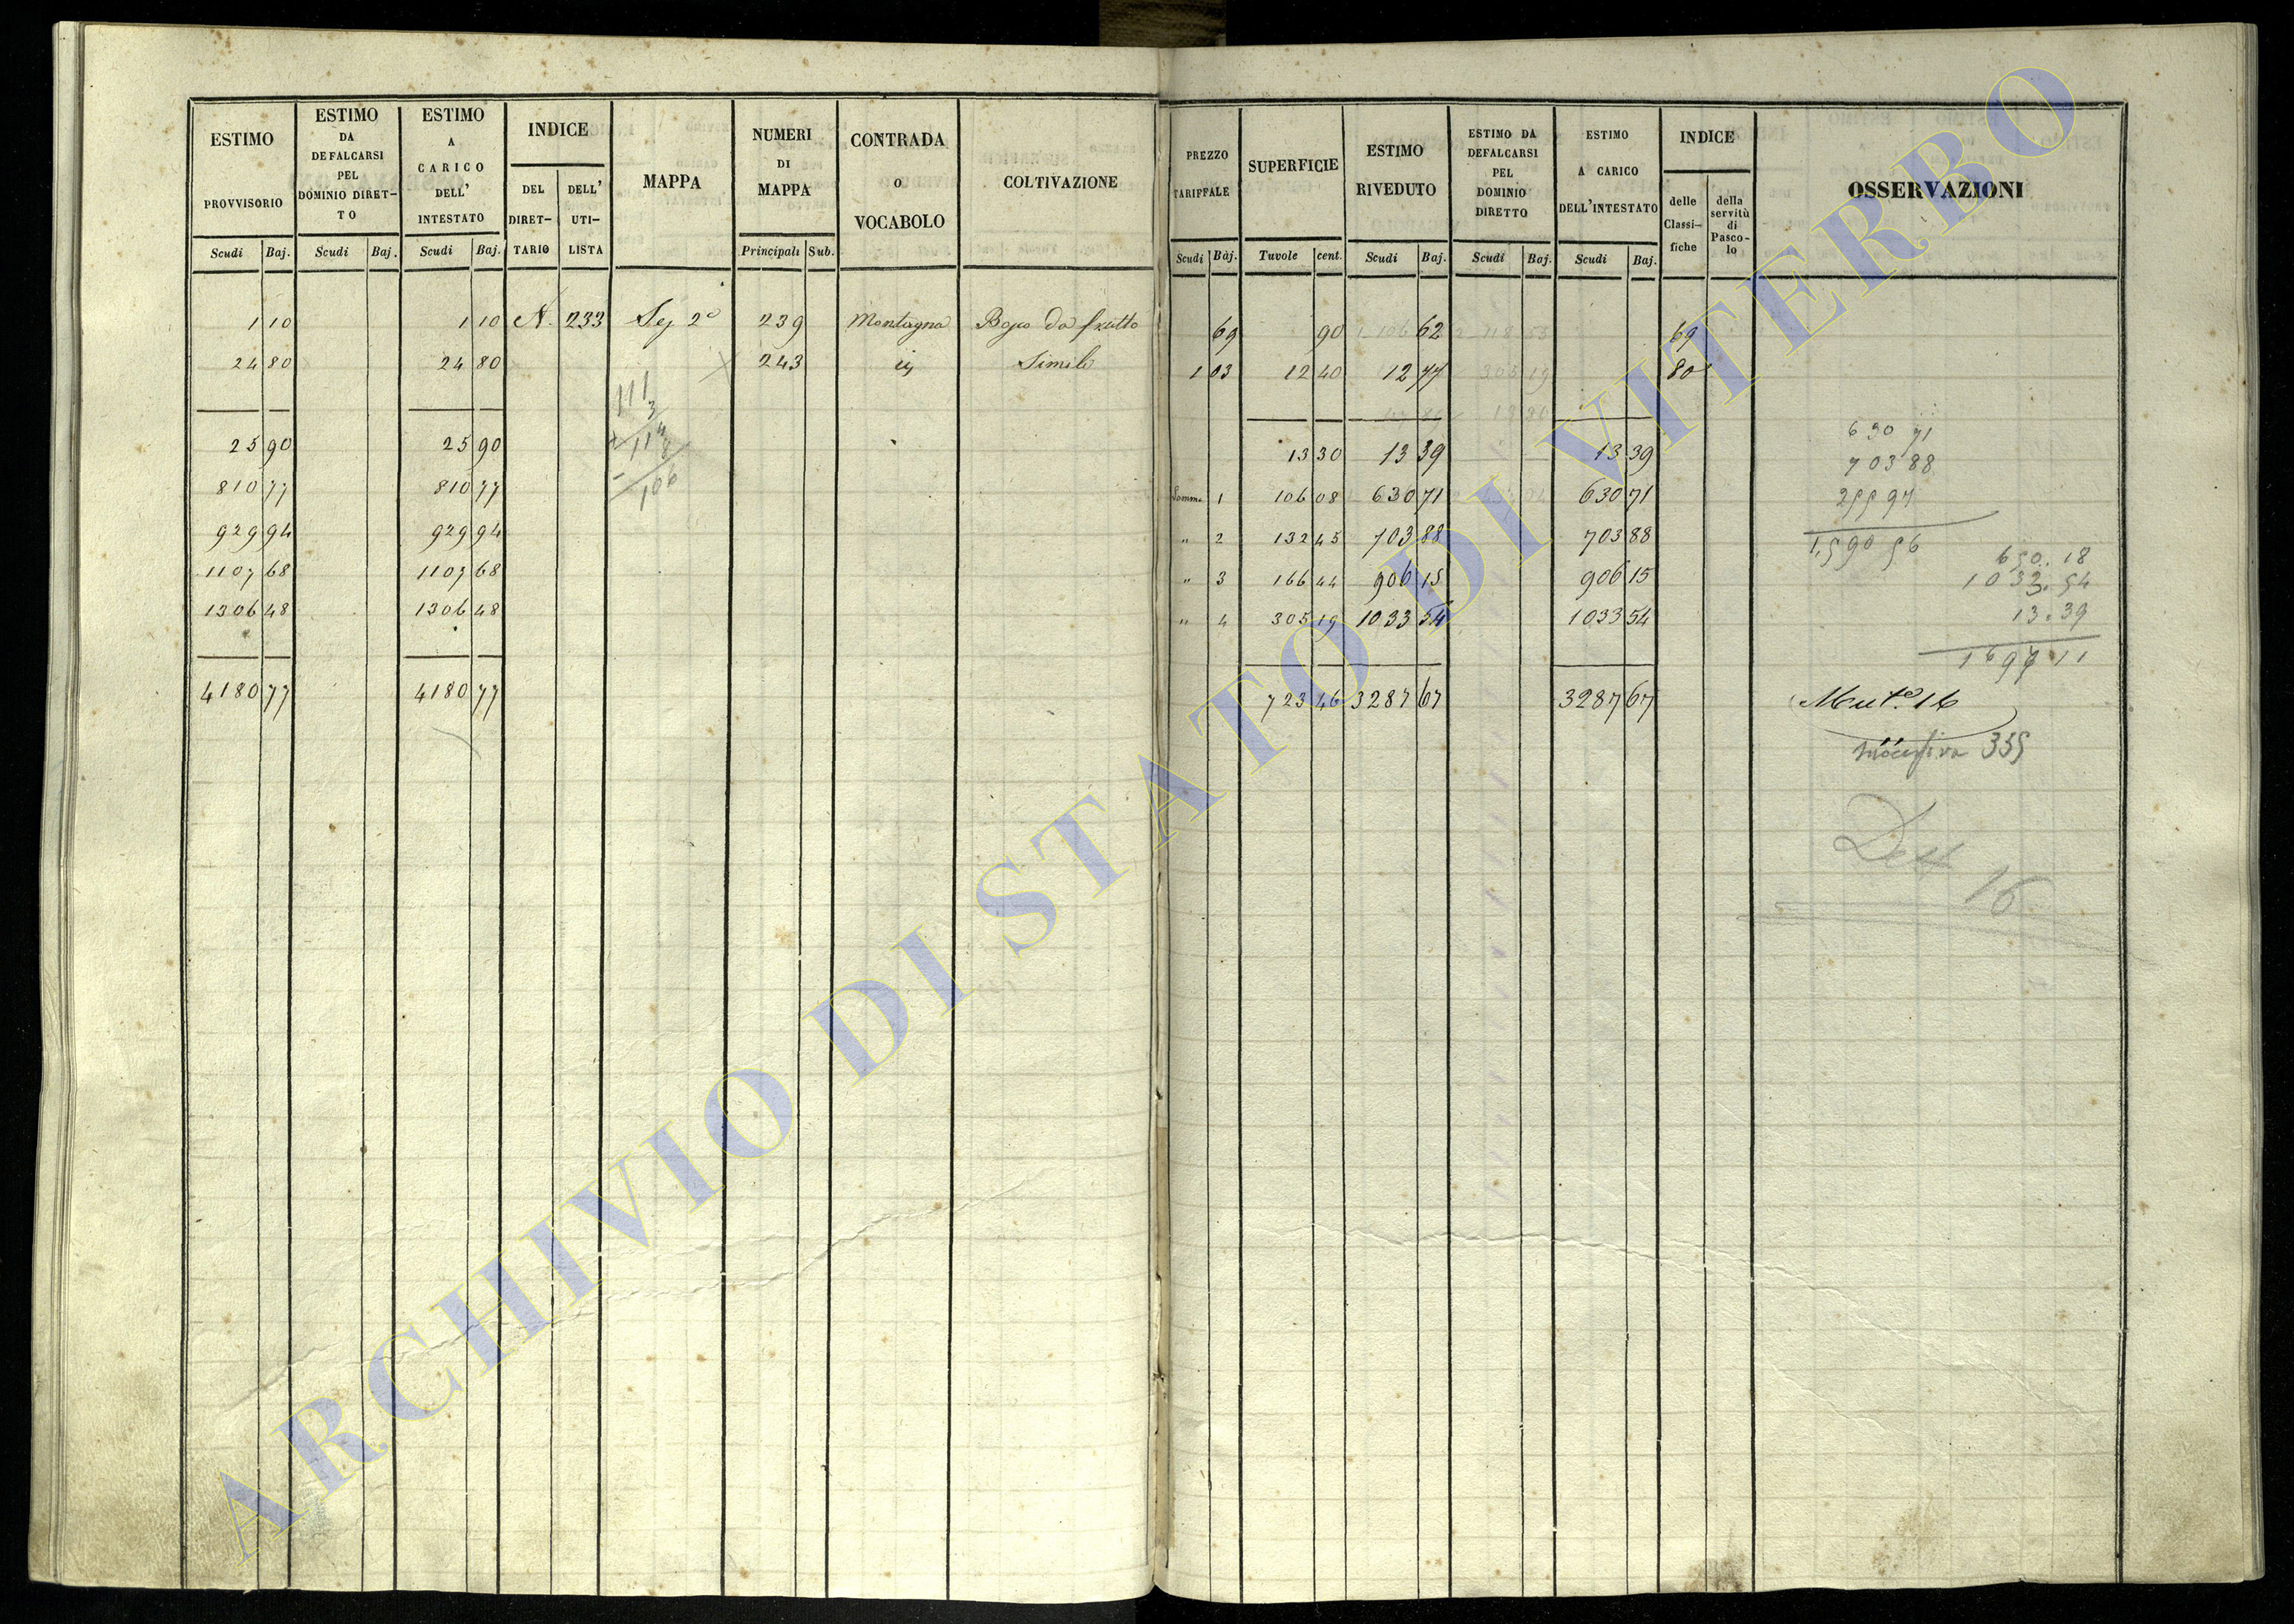 ESTIMO PROVVISORIO | ESTIMO DA DEFALCARSI PEL DOMINIO DIRETTO | ESTIMO A CARICO DELL' INTESTATO | INDICE | MAPPA | NUMERI DI MAPPA | CONTRADA O VOCABOLO | COLTIVAZIONE
DEL DIRETTARIO | DELL' UTILISTA
Scudi | Baj. | Scudi | Baj. | Scudi | Baj. | Principali | Sub.
1 10 | 1 10 | A. 233 | Sez 2ª | 239 | Montagna | Bosco da frutto
24 80 | 24 80 | 243 | id | Simile
25 90 | 25 90
810 77 | 810 77
929 94 | 929 94
1107 68 | 1107 68
1306 48 | 1306 48
4180 77 | 4180 77
111
3
114
8
106
PREZZO TARIFFALE | SUPERFICIE | ESTIMO RIVEDUTO | ESTIMO DA DEFALCARSI PEL DOMINIO DIRETTO | ESTIMO A CARICO DELL'INTESTATO | INDICE | OSSERVAZIONI
delle Classifiche | della servitù di Pascolo
Scudi | Baj. | Tavole | cent. | Scudi | Baj. | Scudi | Baj. | Scudi | Baj.
69 | 90 | 62 | 69
1 03 | 12 40 | 12 77 | 80
13 30 | 13 39 | 13 39
Somma 1 | 106 08 | 630 71 | 630 71
" 2 | 132 45 | 703 88 | 703 88
" 3 | 166 44 | 906 15 | 906 15
" 4 | 305 19 | 1033 54 | 1033 54
723 46 | 3287 67 | 3287 67
630 71
703 88
255 97
1,590 56
650. 18
1033. 54
13. 39
1697 11
Mut.ª 16
335
16
ARCHIVIO DI STATO DI VITERBO